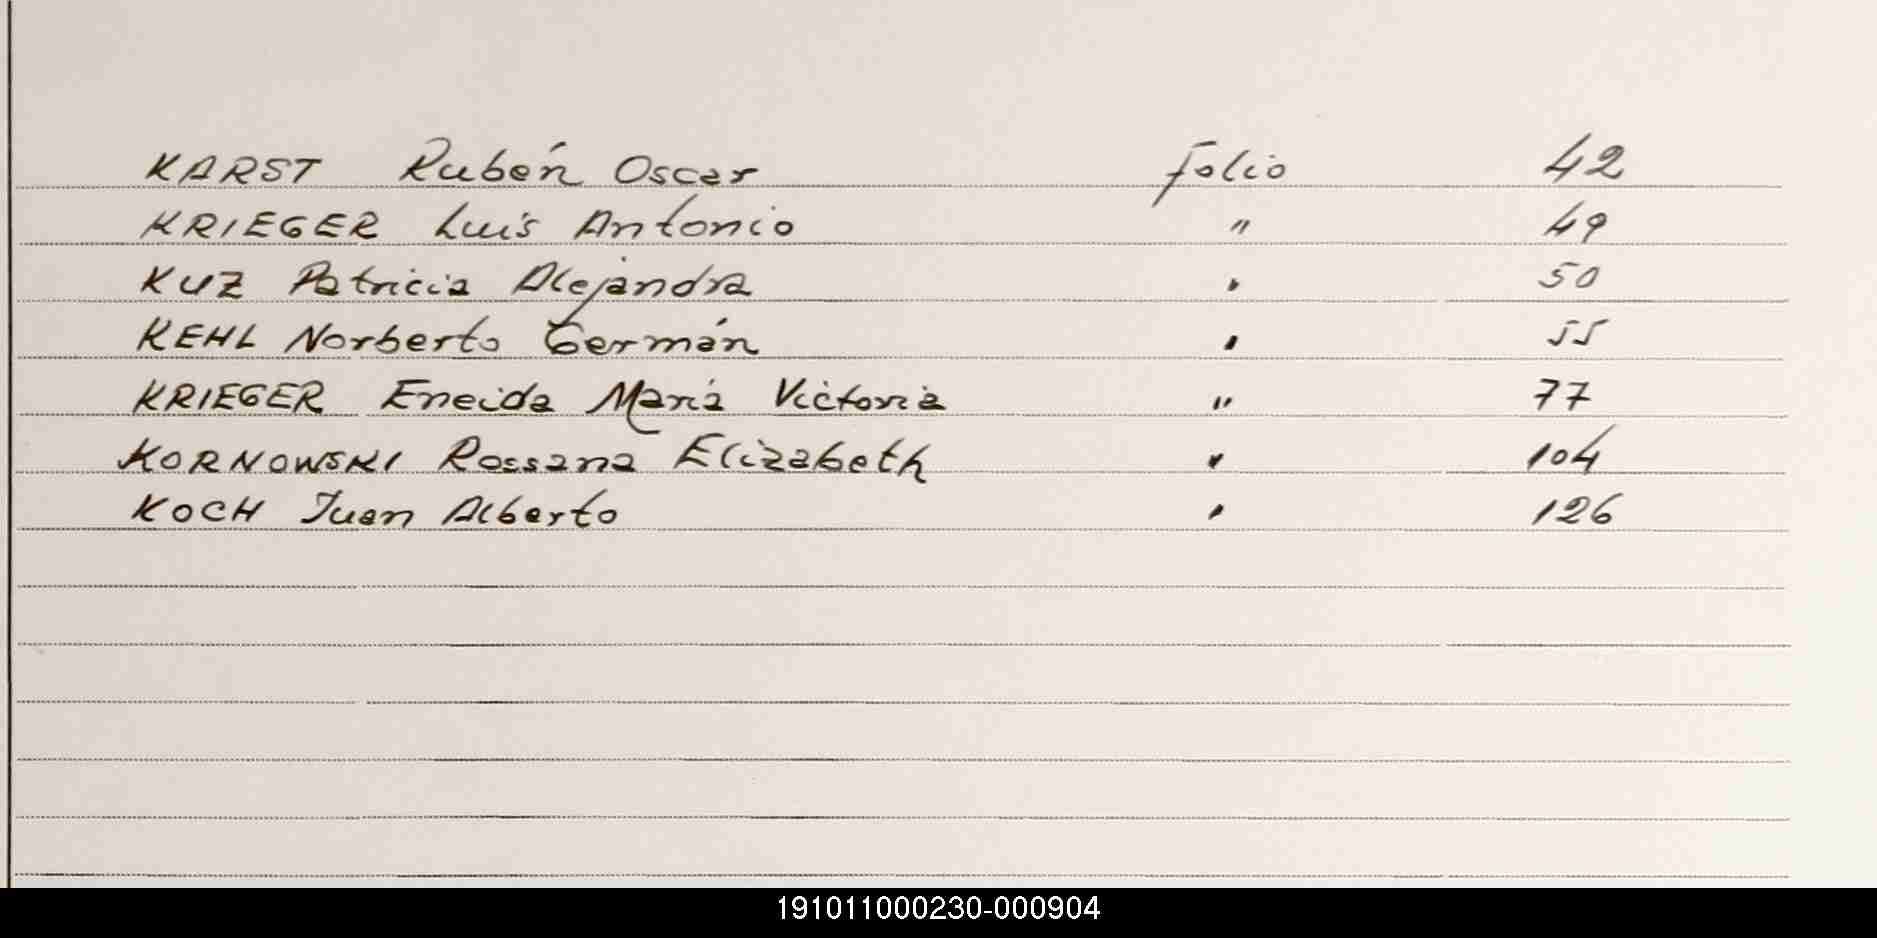 KARST Rubén Oscar folio 42
KRIEGER Luis Antonio " 49
KUZ Patricia Alejandra " 50
KEHL Norberto Germán " 55
KRIEGER Eneida María Victoria " 77
KORNOWSKI Rossana Elizabeth " 104
KOCH Juan Alberto " 126
191011000230-000904